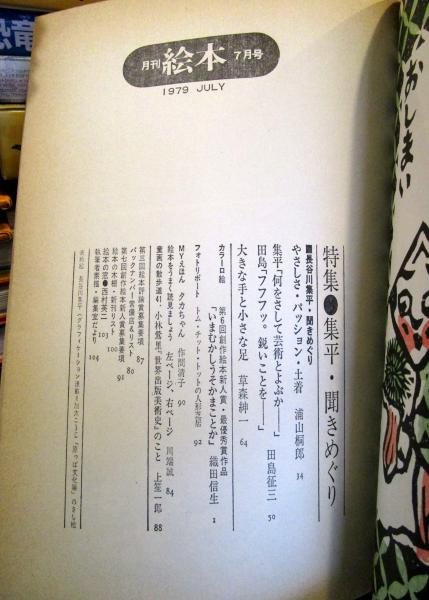 月刊 絵本 7月号
1979 JULY
特集●集平・聞きめぐり
■長谷川集平・聞きめぐり
やさしさ・パッション・土着 浦山桐郎 34
集平「何をさして芸術とよぶか――」
田島「フフフッ。鋭いことを――」 田島征三 50
大きな手と小さな足 草森紳一 64
カラー口絵 第6回創作絵本新人賞・最優秀賞作品
「いまむかしうそかまことか」 織田信生 1
フォトリポート トム・チット・トットの人形芝居 92
MYえほん タカちゃん 作間清子 90
絵本をうまく読見ましょう 左ページ、右ページ 川端誠 84
童画の散歩道41・小林鶯里『世界出版美術史』のこと 上笙一郎 88
第三回絵本評論賞募集要項 87
バックナンバー常備店&リスト 80
第七回創作絵本新人賞募集要項 91
絵本の木棚・新刊リスト 100
絵本の窓●西村英二 103
執筆者素描・編集室だより 104
おしまい
恐竜